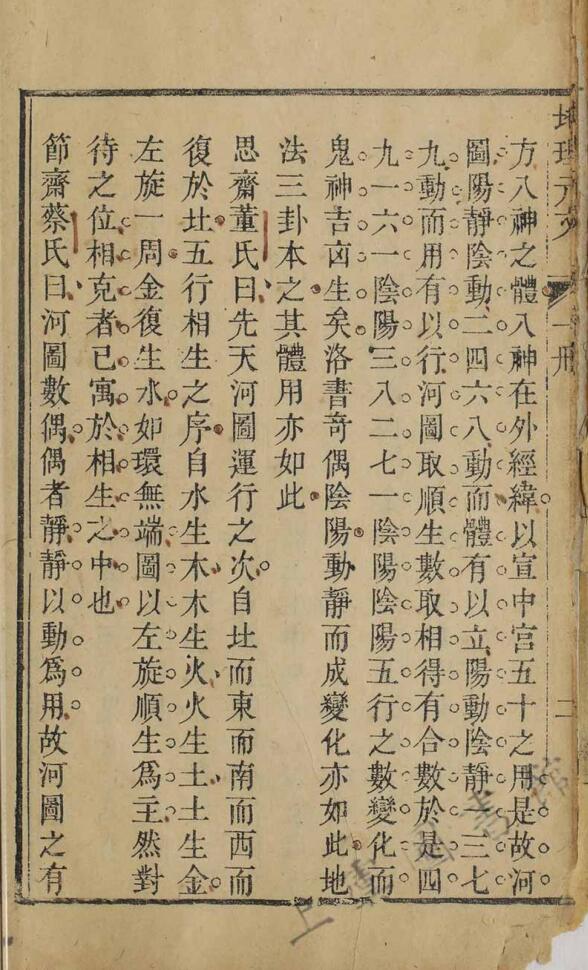 地理元文
一册
二
方八神之體八神在外經緯以宣中宮五十之用是故河
圖陽靜陰動二四六八動而體有以立陽動陰靜一三七
九動而用有以行河圖取順生數取相得有合數於是四
九一六一陰陽三八二七一陰陽陰陽五行之數變化而
鬼神吉凶生矣洛書奇偶陰陽動靜而成變化亦如此地
法三卦本之其體用亦如此
思齋董氏曰先天河圖運行之次自北而東而南而西而
復於北五行相生之序自水生木木生火火生土土生金
左旋一周金復生水如環無端圖以左旋順生爲主然對
待之位相克者已寓於相生之中也
節齋蔡氏曰河圖數偶偶者靜靜以動爲用故河圖之有